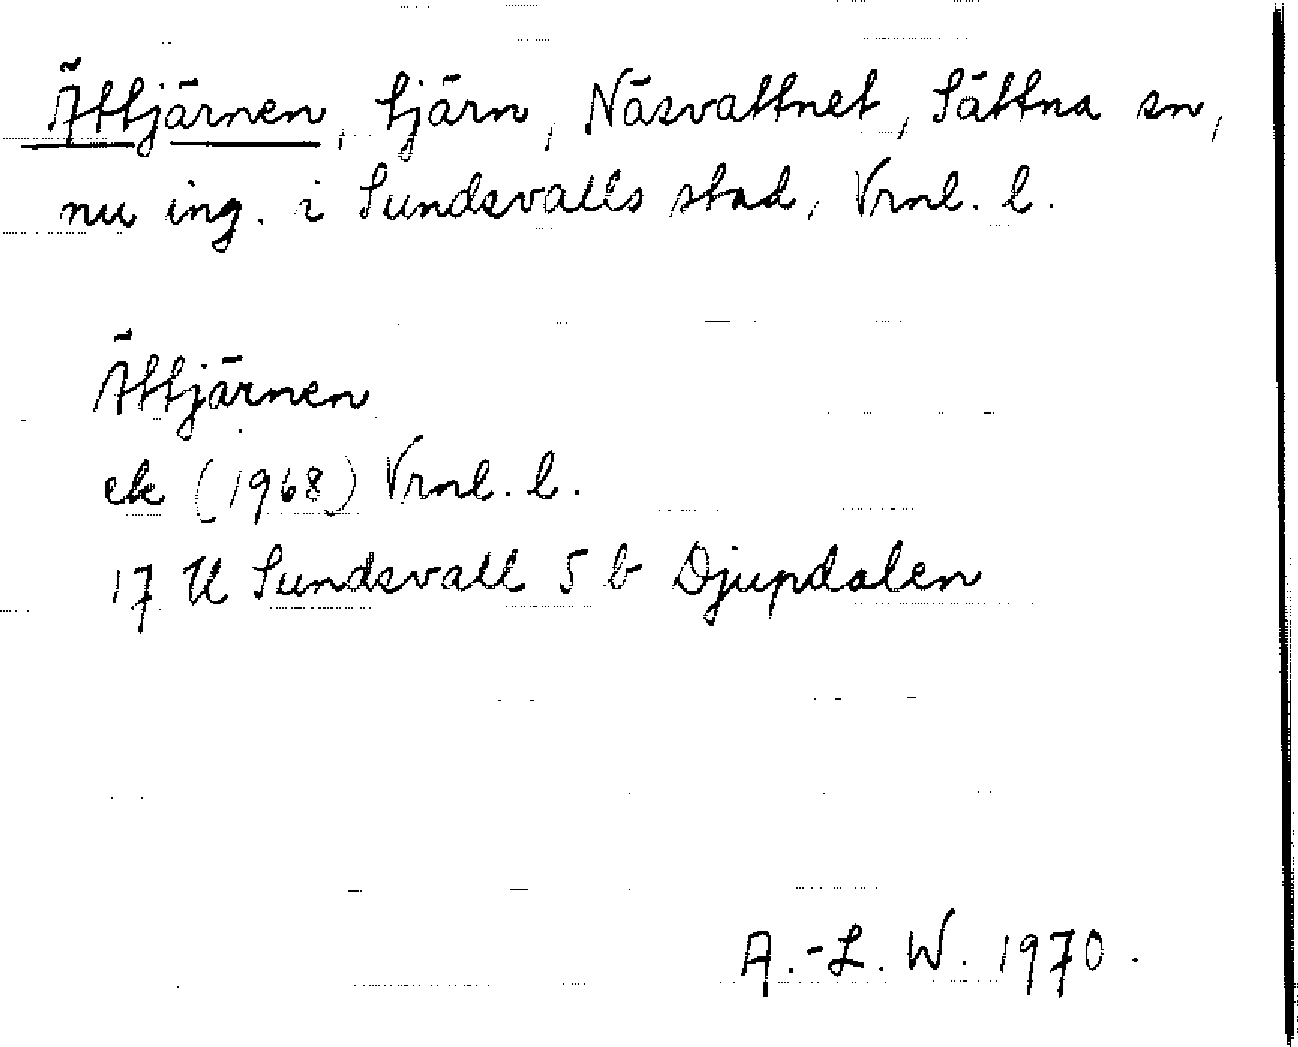 Ättjärnen, tjärn, Näsvattnet, Sättna sn,
nu ing. i Sundsvalls stad, Vrnl. l.
Ättjärnen
ek (1968) Vrnl. l.
17 H Sundsvall 5 b Djupdalen
A.-L. W. 1970.